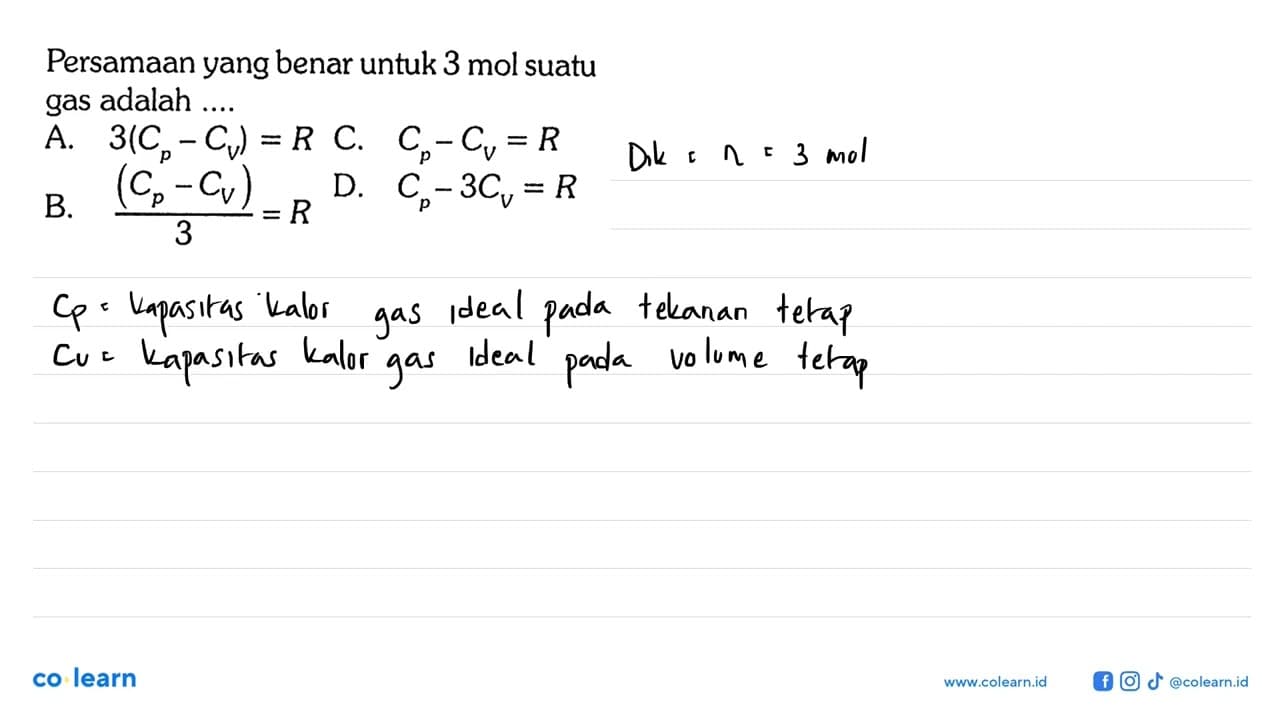 Persamaan yang benar untuk 3 mol suatu
gas adalah ....
A. 3(Cp – Cv) = R C. Cp – Cv = R
B. (Cp – Cv)/3 = R D. Cp – 3Cv = R
Dik : n = 3 mol
Cp = kapasitas kalor gas ideal pada tekanan tetap
Cv = kapasitas kalor gas ideal pada volume tetap
co learn
www.colearn.id
@colearn.id